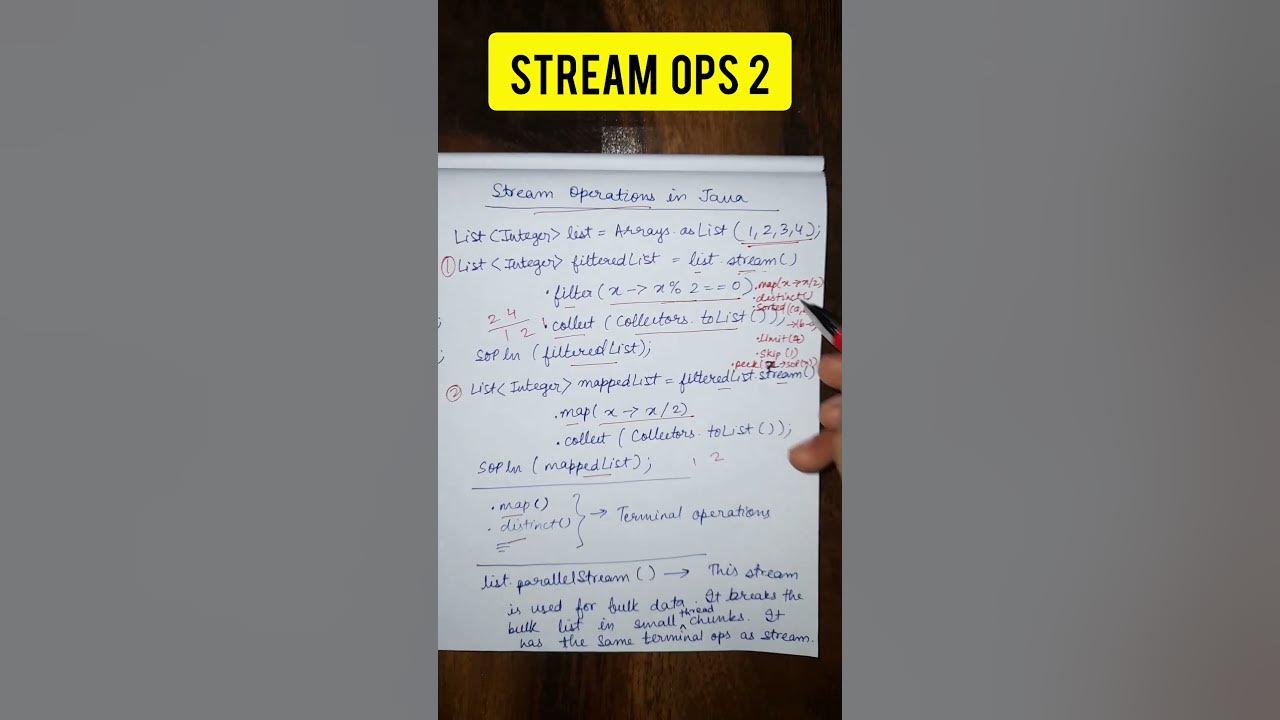 STREAM OPS 2
Stream Operations in Java
List<Integer> list = Arrays.asList(1,2,3,4);
① List<Integer> filteredList = list.stream()
.filter(x -> x % 2 == 0)
.map(x -> x/2)
.distinct()
.sorted((a,
.limit(
.skip(1)
.peek(
2 4
1 2
.collect(Collectors.toList());
SOPln(filteredList);
② List<Integer> mappedList = filteredList.stream()
.map(x -> x/2)
.collect(Collectors.toList());
SOPln(mappedList);
1 2
.map()
.distinct()
} -> Terminal operations
list.parallelStream() -> This stream
is used for bulk data. It breaks the
bulk list in small thread chunks. It
has the same terminal ops as stream.